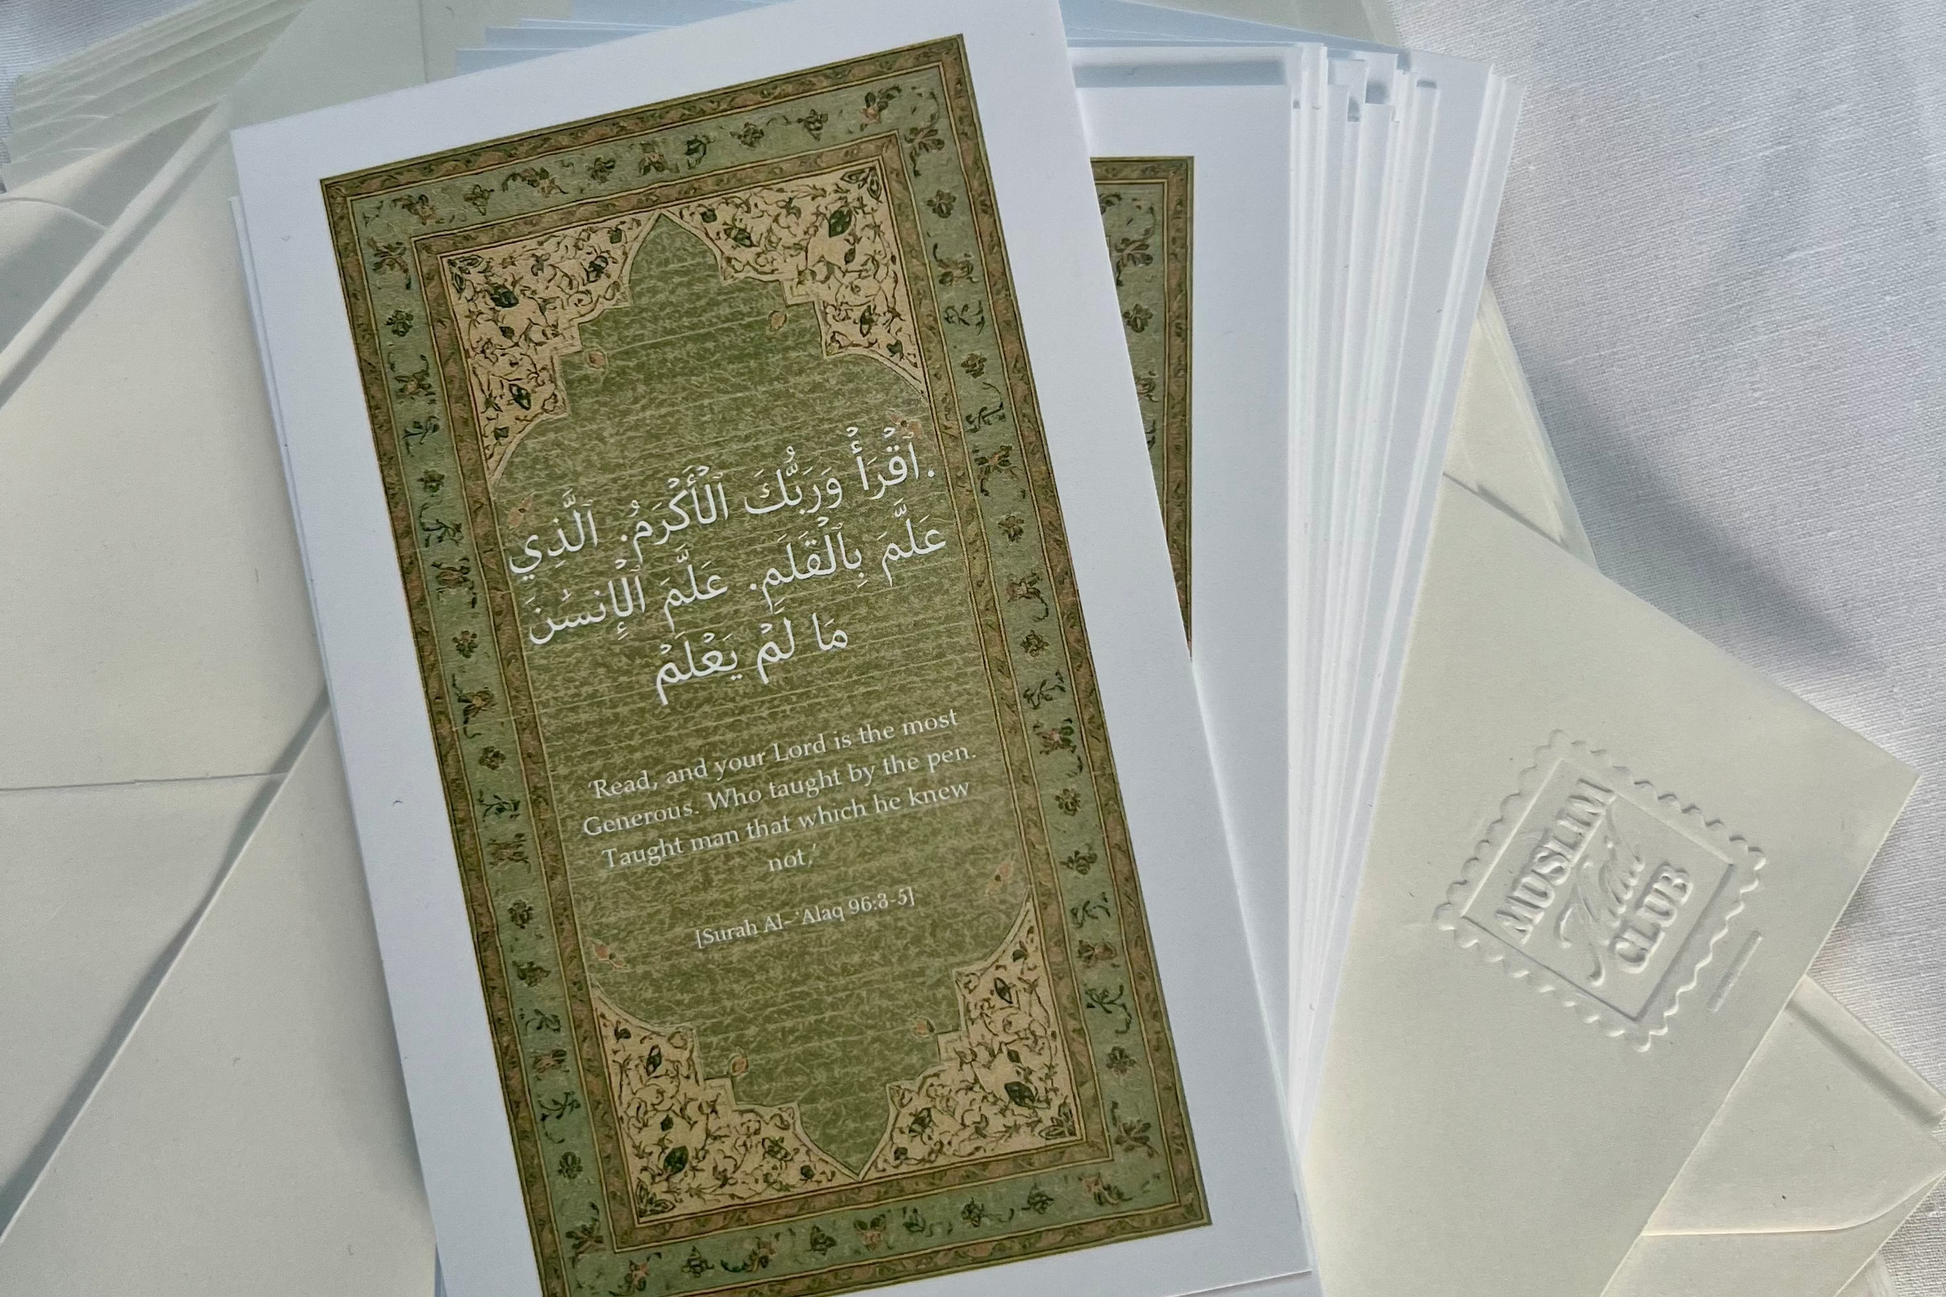 .ٱقۡرَأۡ وَرَبُّكَ ٱلۡأَكۡرَمُ. ٱلَّذِي
عَلَّمَ بِٱلۡقَلَمِ. عَلَّمَ ٱلۡإِنسَٰنَ
مَا لَمۡ يَعۡلَمۡ
'Read, and your Lord is the most
Generous. Who taught by the pen.
Taught man that which he knew
not,'
[Surah Al-'Alaq 96:3-5]
MUSLIM
CLUB